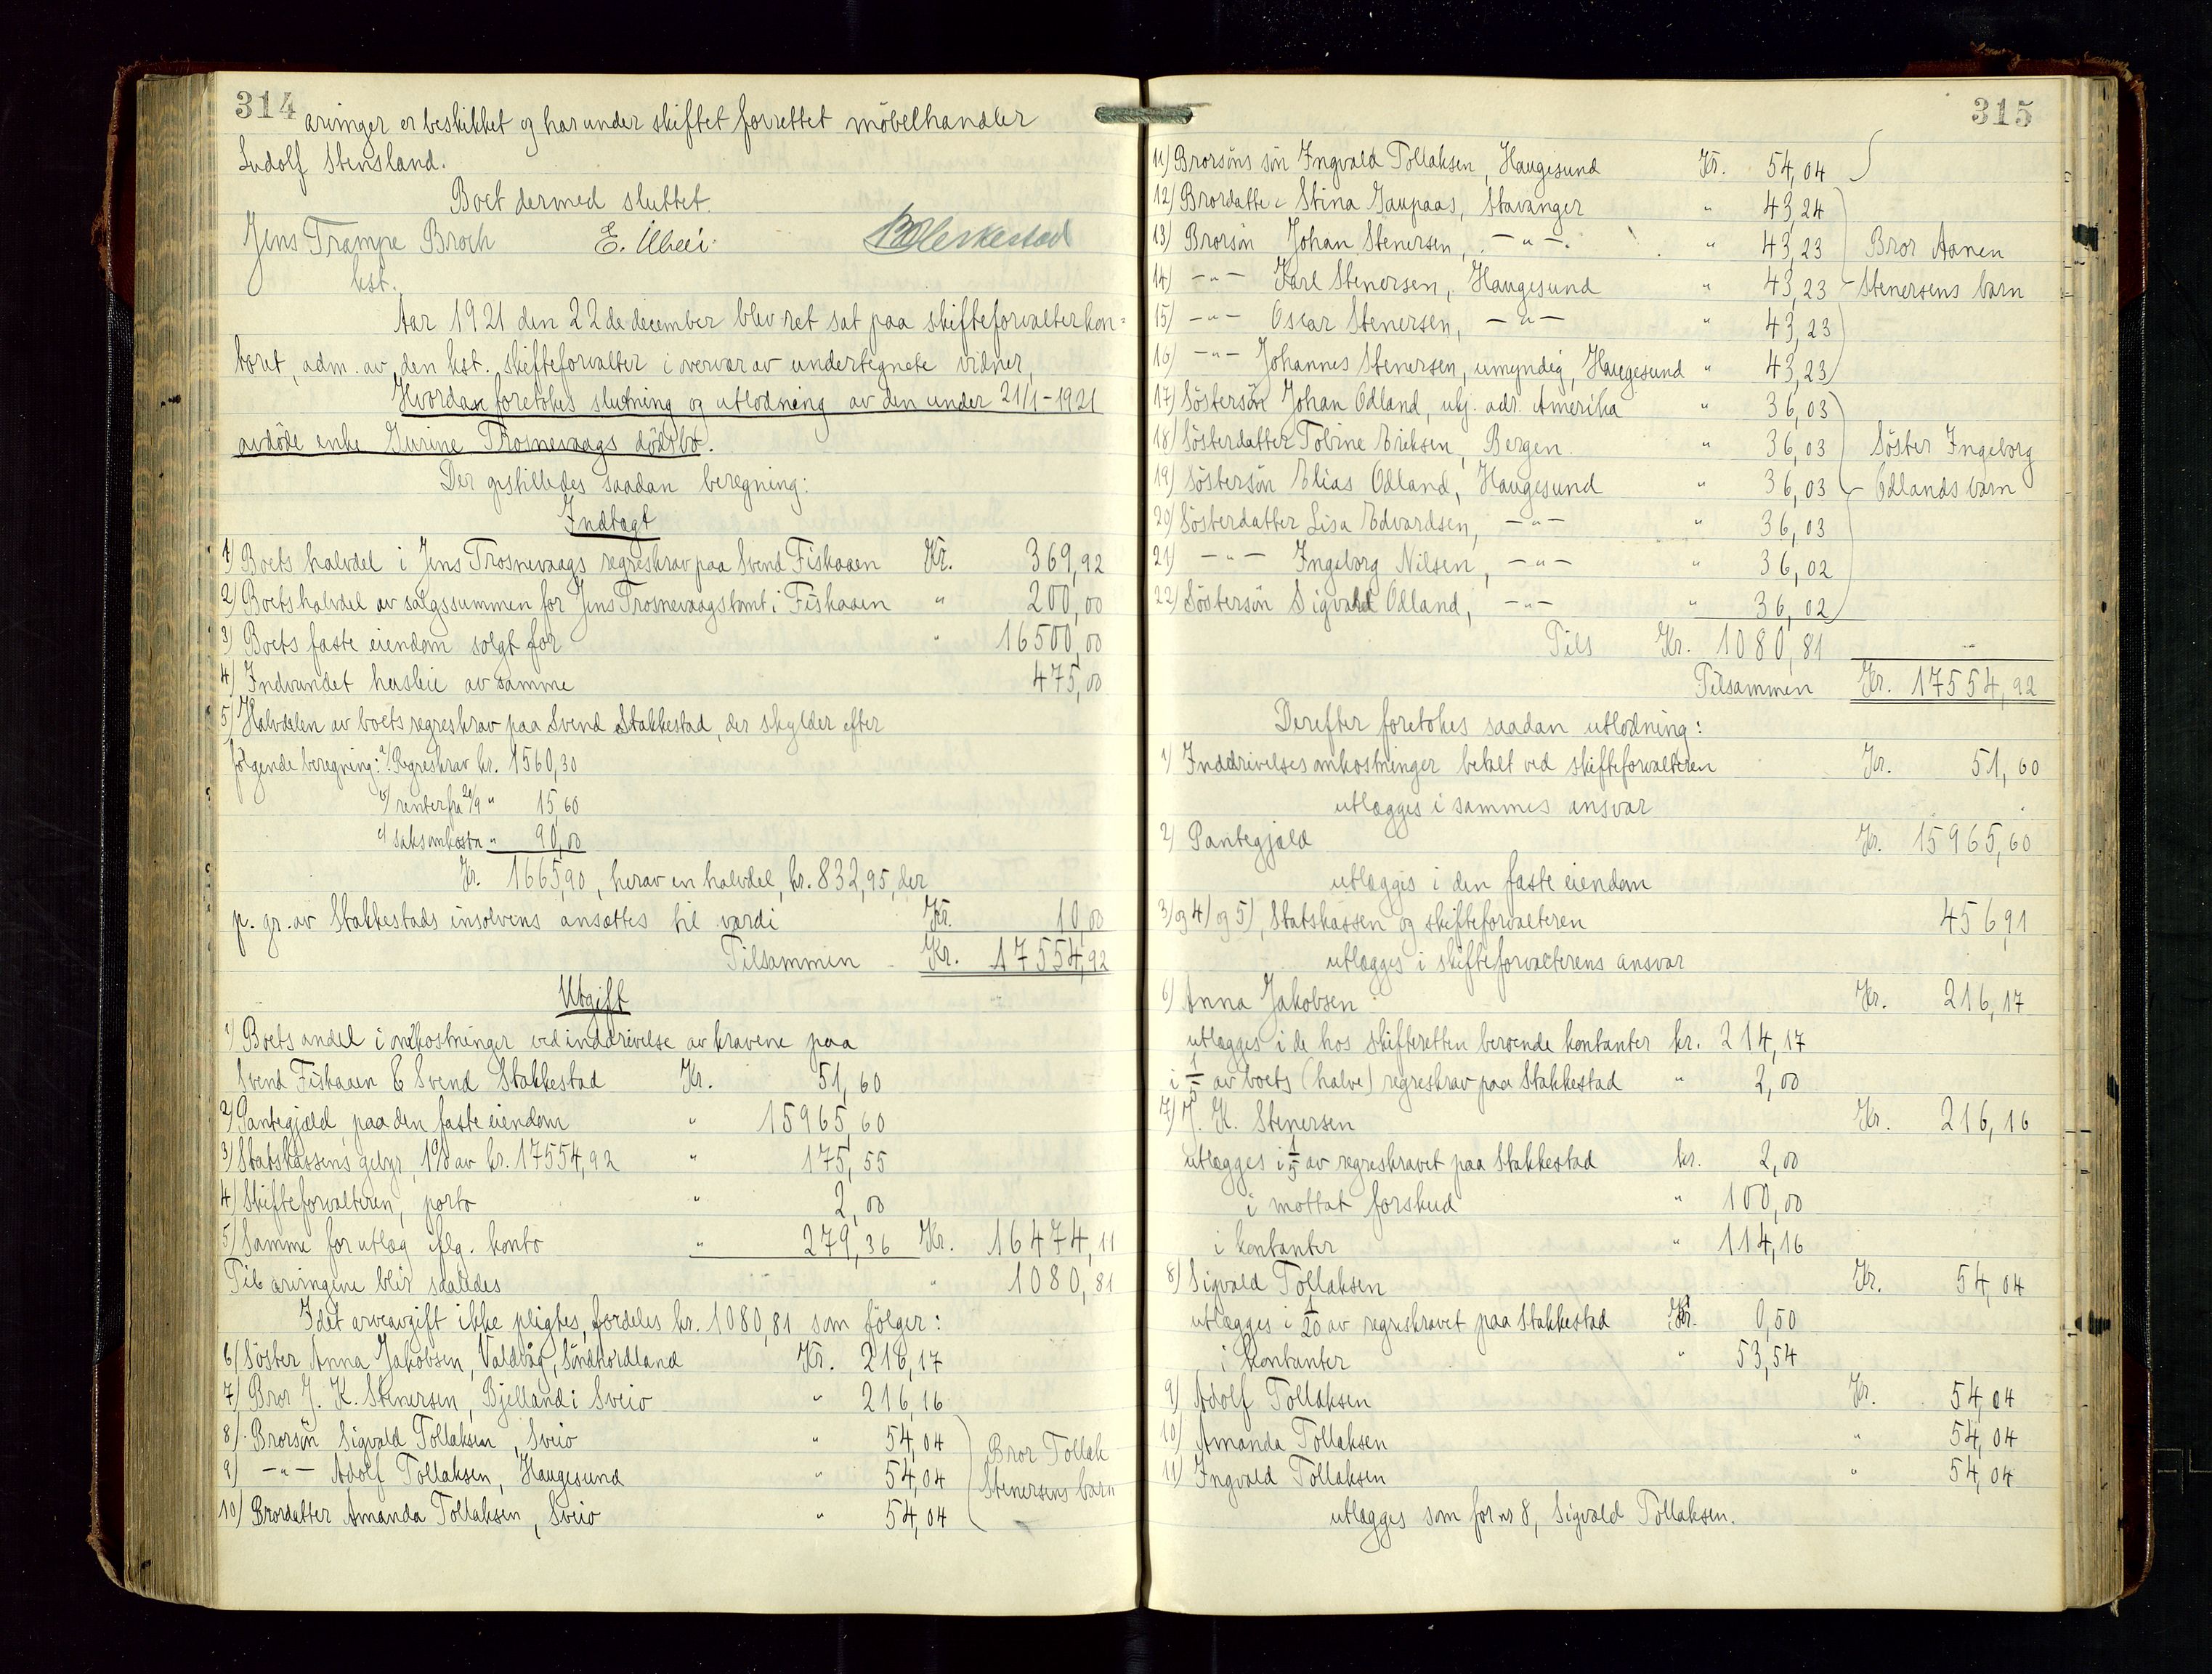 314
arvinger er beskikket og har under skiftet forrettet möbelhandler
Ludolf Stensland.
Boet dermed sluttet.
Jens Trampe Broch
kst.
Aar 1921 den 22de december blev ret sat paa skifteforvalterkon=
toret, adm. av den kst. skifteforvalter i overvær av undertegnete vidner,
Hvordan foretokes slutning og utlodning av den under 21/1-1921
avdöde enke Gurine Trosnevaags dödsbo.
Der opstilledes saadan beregning:
Indtægt
1) Boets halvdel i Jens Trosnevaags regreskrav paa Svend Fiskaaen Kr. 369,92
2) Boets halvdel av salgssummen for Jens Trosnevaags tomt i Fiskaaen " 200,00
3) Boets faste eiendom solgt for " 16500,00
4) Indvundet husleie av samme 475,00
5) Halvdelen av boets regreskrav paa Svend Stakkestad, der skylder efter
følgende beregning: a/ Regreskrav kr. 1560,30
b/ renter fra 20/9 " 15,60
c/ saksomkostn " 90,00
Kr. 1665,90, herav en halvdel, kr. 832,95, der
p. gr. av Stakkestads insolvens ansættes til værdi Kr. 10,00
Tilsammen Kr. 17554,92
Utgift
1) Boets andel i omkostninger ved inddrivelse av kravene paa
Svend Fiskaaen & Svend Stakkestad Kr. 51,60
2) Pantegjæld paa den faste eiendom " 15965,60
3) Statskassens gebyr, 1% av kr. 17554,92 " 175,55
4) Skifteforvalteren, porto " 2,00
5) Samme for utlæg iflg. konto " 279,36 Kr. 16474,11
Til arvingene blir saaledes " 1080,81
Idet arveavgift ikke pligtes, fordeles kr. 1080,81 som følger:
6) Söster Anna Jakobsen, Valdvåg, Söndhordland Kr. 216,17
7) Bror J. K. Stenersen, Bjelland i Sveio " 216,16
8) Brorsön Sigvald Tollaksen, Sveio " 54,04
Bror Tollak
9) -"- Adolf Tollaksen, Haugesund " 54,04
Stenersens barn
10) Brordatter Amanda Tollaksen, Sveio " 54,04
315
11) Brorsöns sön Ingvald Tollaksen, Haugesund Kr. 54,04
12) Brordatter Stina Gaupaas, Stavanger " 43,24
13) Brorsön Johan Stenersen, -"- " 43,23 Bror Aanen
14) -"- Karl Stenersen, Haugesund " 43,23 Stenersens barn
15) -"- Oscar Stenersen, -"- " 43,23
16) -"- Johannes Stenersen, umyndig, Haugesund " 43,23
17) Söstersön Johan Odland, ubj. adr. Amerika " 36,03
18) Sösterdatter Tobine Eriksen, Bergen " 36,03 Söster Ingeborg
19) Söstersön Elias Odland, Haugesund " 36,03 Odlands barn
20) Sösterdatter Lisa Edvardsen, -"- " 36,03
21) -"- Ingeborg Nilsen, -"- " 36,02
22) Söstersön Sigvald Odland, -"- " 36,02
Tils Kr. 1080,81 "
Tilsammen Kr. 17554,92
Derefter foretokes saadan utlodning:
1) Inddrivelsesomkostninger betalt ved skifteforvalteren Kr. 51,60
utlægges i sammes ansvar
2) Pantegjæld Kr. 15965,60
utlægges i den faste eiendom
3) og 4) og 5), Statskassen og skifteforvalteren 456,91
utlægges i skifteforvalterens ansvar
6) Anna Jakobsen Kr. 216,17
utlægges i de hos skifteretten beroende kontanter kr. 214,17
i 1/5 av boets (halve) regreskrav paa Stakkestad " 2,00
7) J. K. Stenersen Kr. 216,16
utlægges i 1/5 av regreskravet paa Stakkestad kr. 2,00
i mottat forskud " 100,00
i kontanter " 114,16
8) Sigvald Tollaksen Kr. 54,04
utlægges i 1/20 av regreskravet paa Stakkestad Kr. 0,50
i kontanter " 53,54
9) Adolf Tollaksen Kr. 54,04
10) Amanda Tollaksen " 54,04
11) Ingvald Tollaksen " 54,04
utlægges som for nr 8, Sigvald Tollaksen.